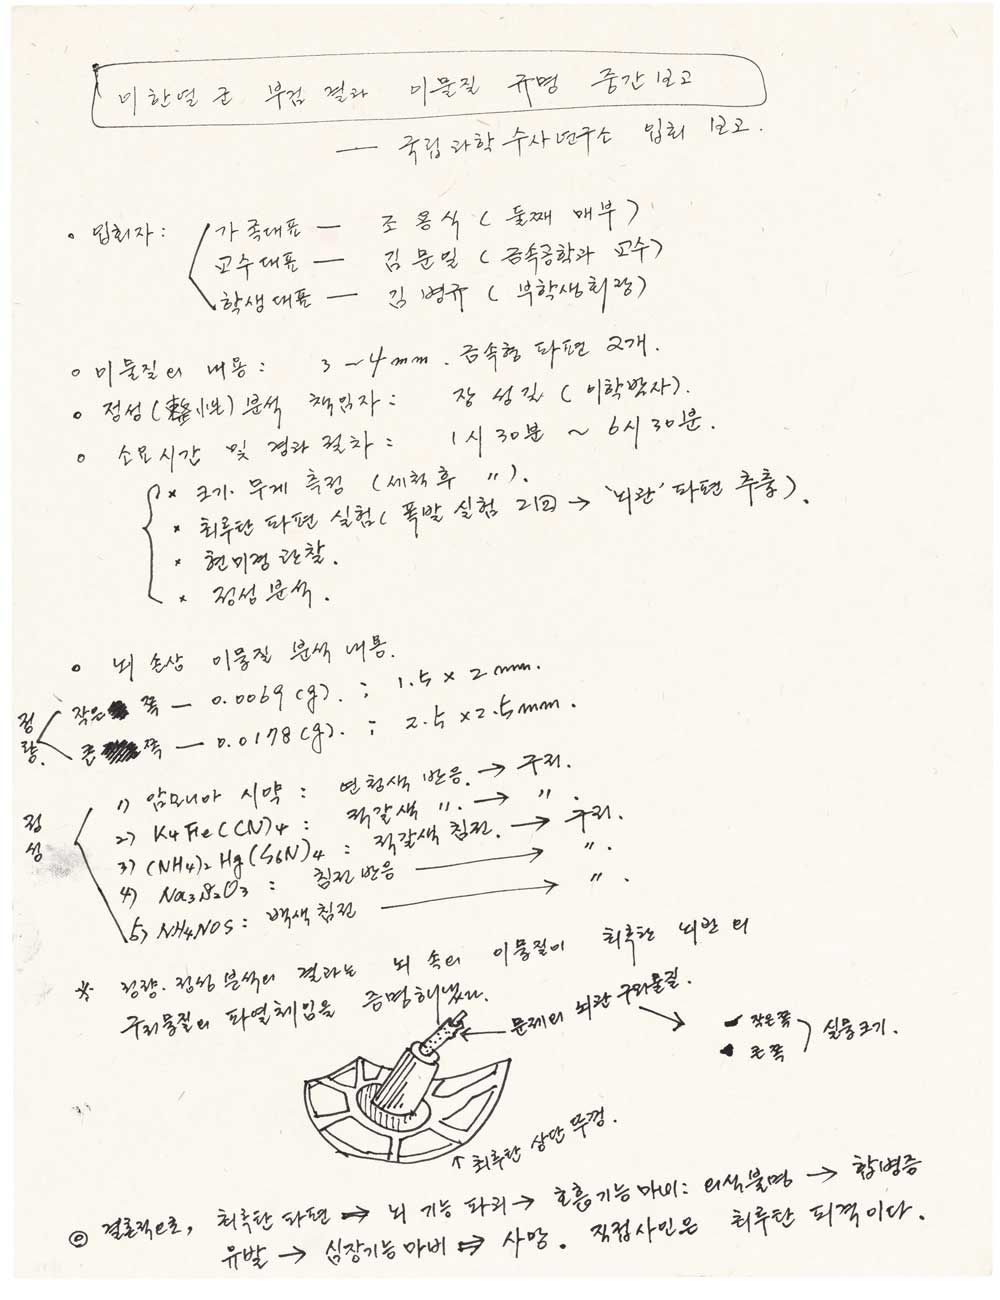 이한열 군 부검 결과 이물질 규명 중간보고
— 국립과학수사연구소 입회 보고.
◦ 입회자 : 가족대표 — 조용식 ( 둘째 매부 )
교수대표 — 김문일 ( 금속공학과 교수 )
학생대표 — 김병규 ( 부학생회장 )
◦ 이물질의 내용 : 3 ~ 4 mm. 금속형 파편 2개.
◦ 정성 ( 性 ) 분석 책임자 : 장성길 ( 이학박사 ).
◦ 소요시간 및 경과 절차 : 1시 30분 ~ 6시 30분.
× 크기. 무게 측정 ( 세척후 〃 ).
× 최루탄 파편 실험 ( 폭발 실험 2回 → '뇌관' 파편 추출 ).
× 현미경 관찰.
× 정성 분석.
◦ 뇌 손상 이물질 분석 내용.
정량. 작은 쪽 — 0.0069 (g). ; 1.5 × 2 mm.
큰 쪽 — 0.0178 (g). ; 2.5 × 2.5 mm.
정성 1) 암모니아 시약 : 연청색 반응. → 구리.
2) K4Fe(CN)4 : 적갈색 〃. → 〃.
3) (NH4)2 Hg(S6N)4 : 적갈색 침전. → 구리.
4) Na3S2O3 : 침전 반응 → 〃.
5) NH4NOS : 백색 침전 → 〃.
※ 정량. 정성 분석의 결과는 뇌 속의 이물질이 최루탄 뇌관의
구리물질의 파열체임을 증명해냈다.
← 문제의 뇌관 구리물질.
작은쪽
큰쪽
실물크기.
↑ 최루탄 상단 뚜껑.
◎ 결론적으로, 최루탄 파편 ⇒ 뇌 기능 파괴 → 호흡기능 마비 : 의식불명 → 합병증
유발 → 심장기능 마비 ⇒ 사망. 직접사인은 최루탄 피격이다.